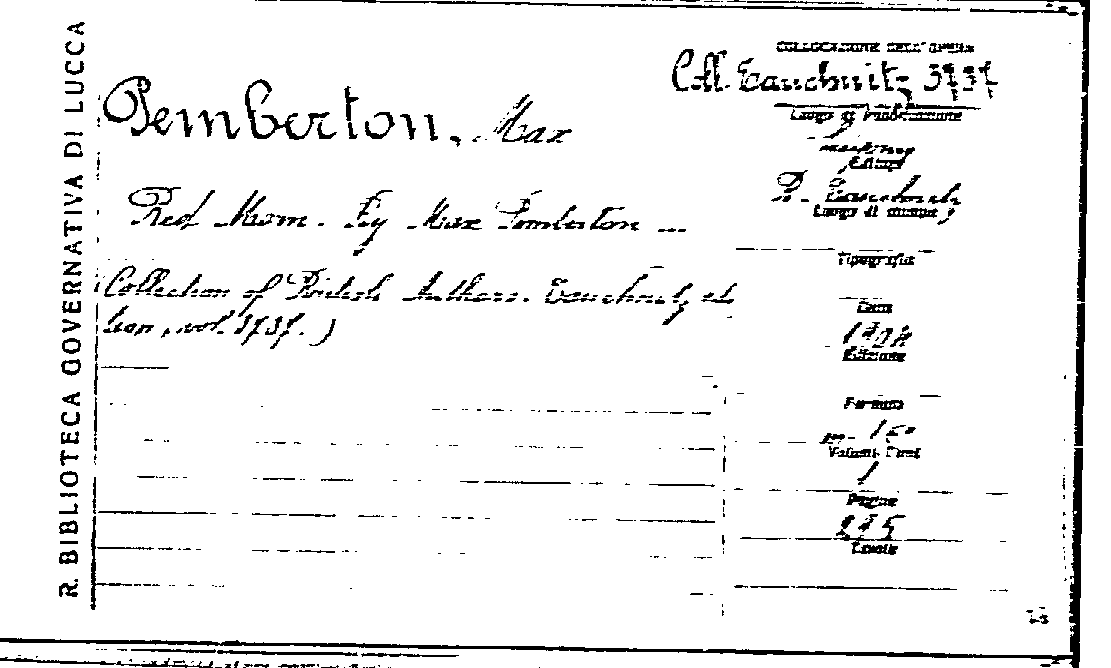 R. BIBLIOTECA GOVERNATIVA DI LUCCA
Pemberton, Max
Red Morn. By Max Pemberton ...
Collection of British Authors. Tauchnitz edi
tion, vol. 3737.)
COLLOCAZIONE DELL'OPERA
Coll. Tauchnitz 3737
Luogo di pubblicazione
Editore
B. Tauchnitz
Luogo di stampa
Tipografia
Data
Edizione
Formato
in-16°
Volumi
1
Pagine
Tavole